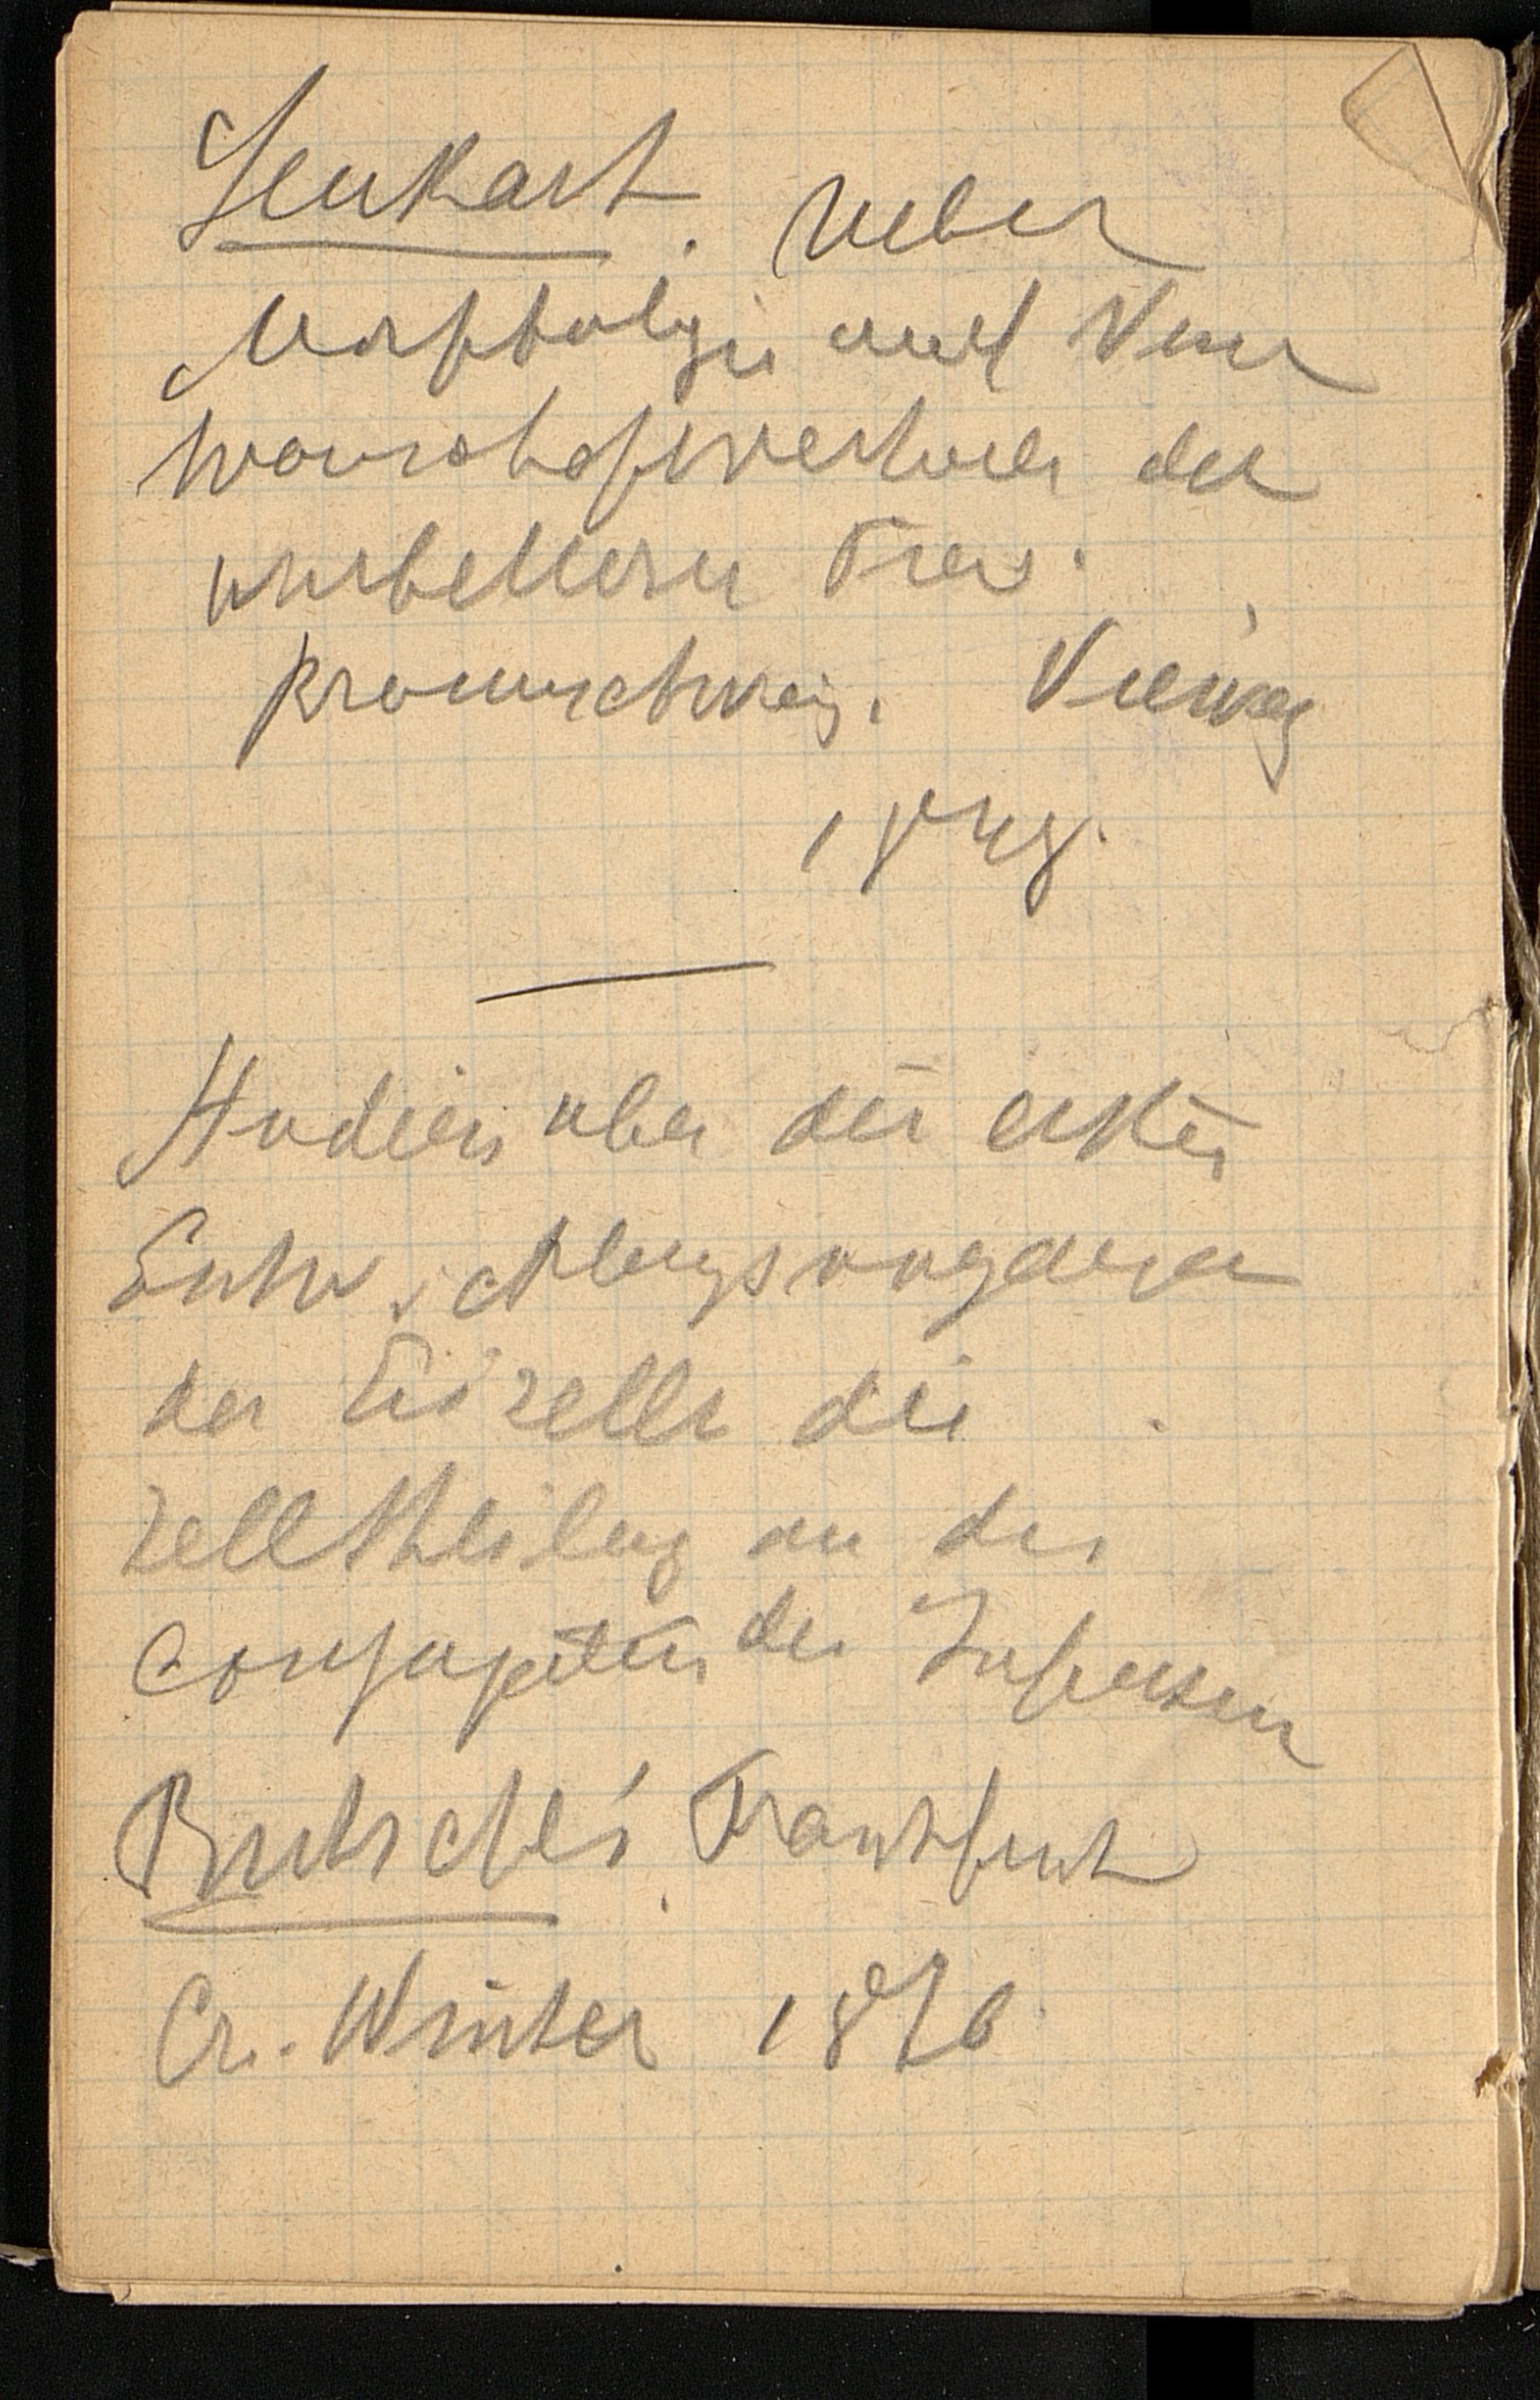 Leukart. Ueber
Morphologie und Ver
wandschaftverhaeln der
wirbellosen Tiere.
Braunschweig. Vieweg
1848.
Studien uber die ersten
Entwicklungsvorgange
der Eizelle die
Zelltheilung an die
Conjugation der Infusorien
Butschli. Frankfurt
Cr. Winter 1876